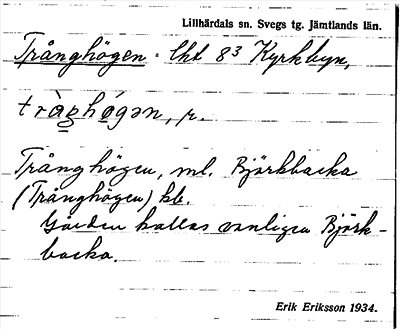 Lillhärdals sn. Svegs tg. Jämtlands län.
Trånghögen. lht 8³ Kyrkbyn,
tràŋhǿgən, r.
Trånghögen, ml. Björkbacka
(Trånghögen) kb.
Gården kallas vanligen Björk-
backa.
Erik Eriksson 1934.